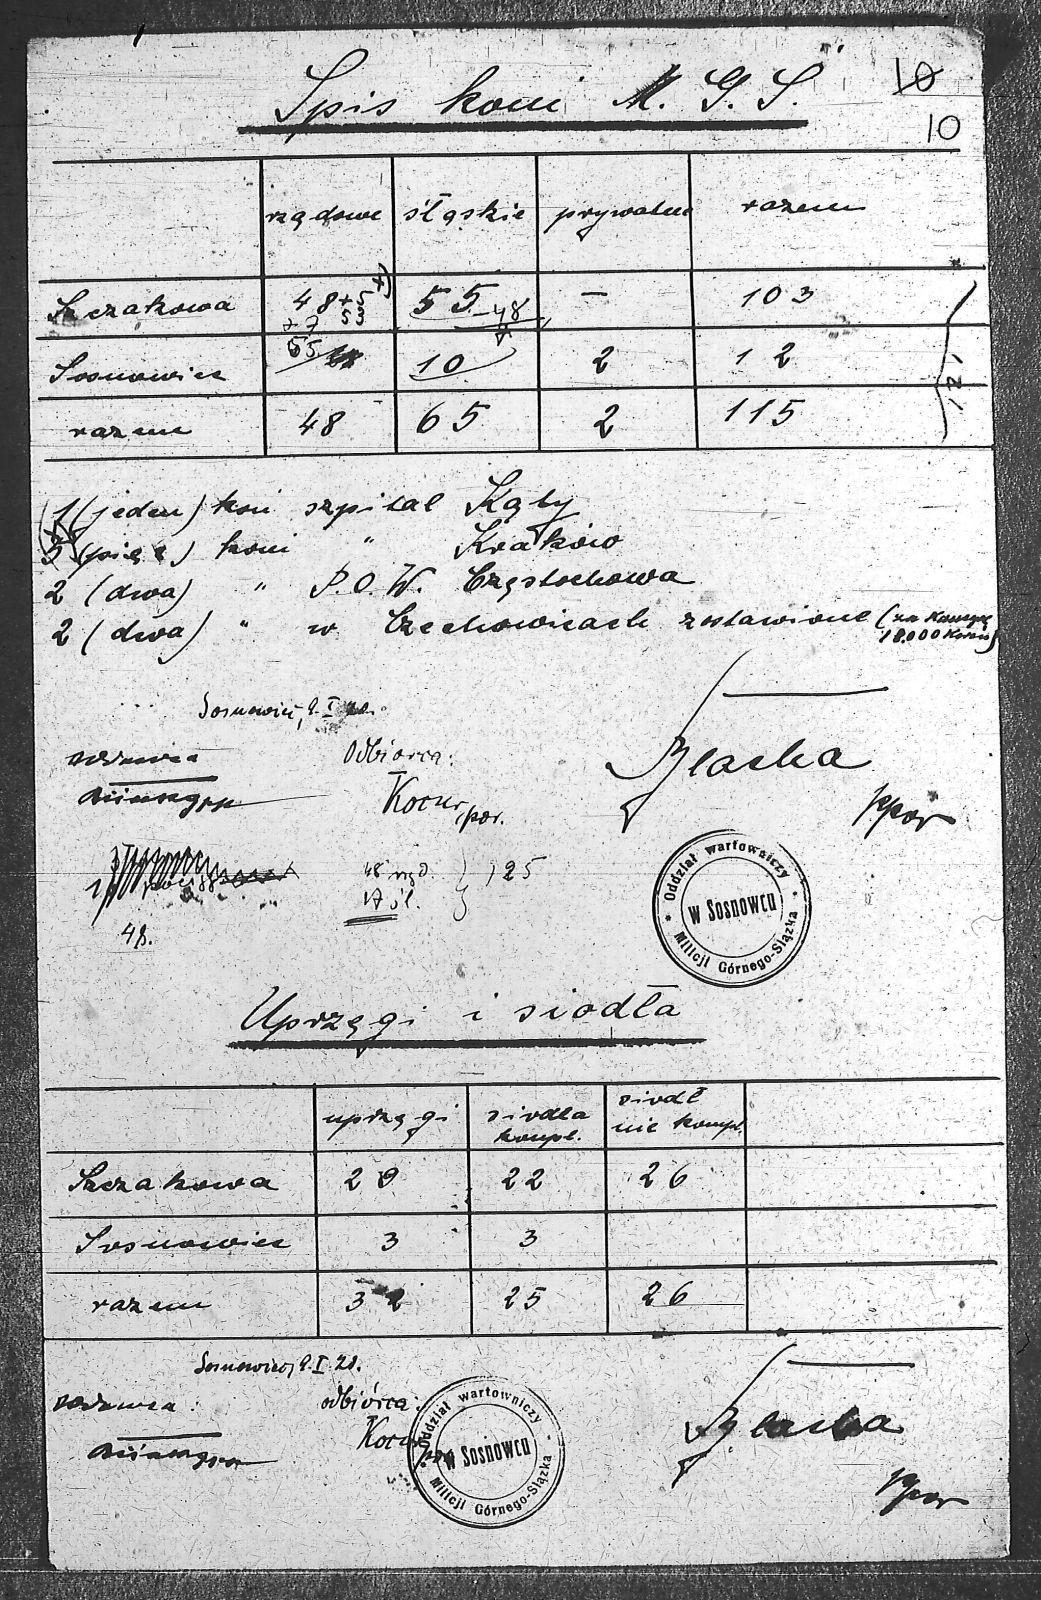 Spis koni M. G. S.
10
10
rządowe śląskie prywatne razem
Szczakowa 48 +5 55 -48 — 103
+7 53
55
Sosnowiec 10 2 12
razem 48 65 2 115
121
1 (jeden) koń szpital Kęty
5 (pięć) koni " Kraków
2 (dwa) " P.O.W. Częstochowa
2 (dwa) " w Czechowicach zostawione (za
18.000 Koron)
Sosnowiec, 9. I 20.
Odbiorca:
Kocur, por.
Blacha
ppor
48 rząd. } 125
śl.
48.
* Oddział wartowniczy *
w Sosnowcu
Milicji Górnego-Slązka
Uprzęgi i siodła
uprzęgi siodła kompl. siodł nie kompl.
Szczakowa 29 22 26
Sosnowiec 3 3
razem 32 25 26
Sosnowiec, 9. I. 20.
odbiórca:
Kocur
Oddział wartowniczy
w Sosnowcu
Milicji Górnego-Slązka
Blacha
ppor